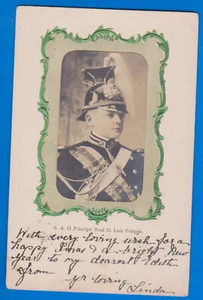 S. A. O Principe Real D. Luis Felippe
With every loving wish for a
happy Xmas & a bright New
Year to my dearest Edith
from
yr loving
Linda